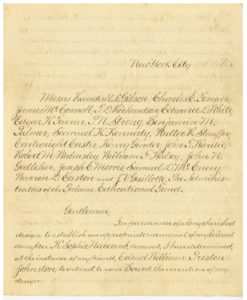 New York City
Messrs Randall L. Gibson, Charles E. Fenner,
James McConnell, T. D. Richardson, Edward D. White,
Edgar H. Farrar, P. N. Strong, Benjamin M.
Palmer, Samuel H. Kennedy, Walter R. Stauffer,
Cartwright Eustis, Henry Ginder, John T. Hardie,
Robert M. Walmsley, William F. Halsey, John N.
Galleher, Joseph C. Morris, Samuel D. McEnery,
and J. V. Guillotte, The Adminis-
trators of the Tulane Educational Fund.
Gentlemen,
In pursuance of a long cherished
design to establish an appropriate memorial of my beloved
daughter H. Sophie Newcomb, deceased, I have determined,
at the instance of my friend, Colonel William Preston
Johnston, to entrust to your Board the execution of my
design.